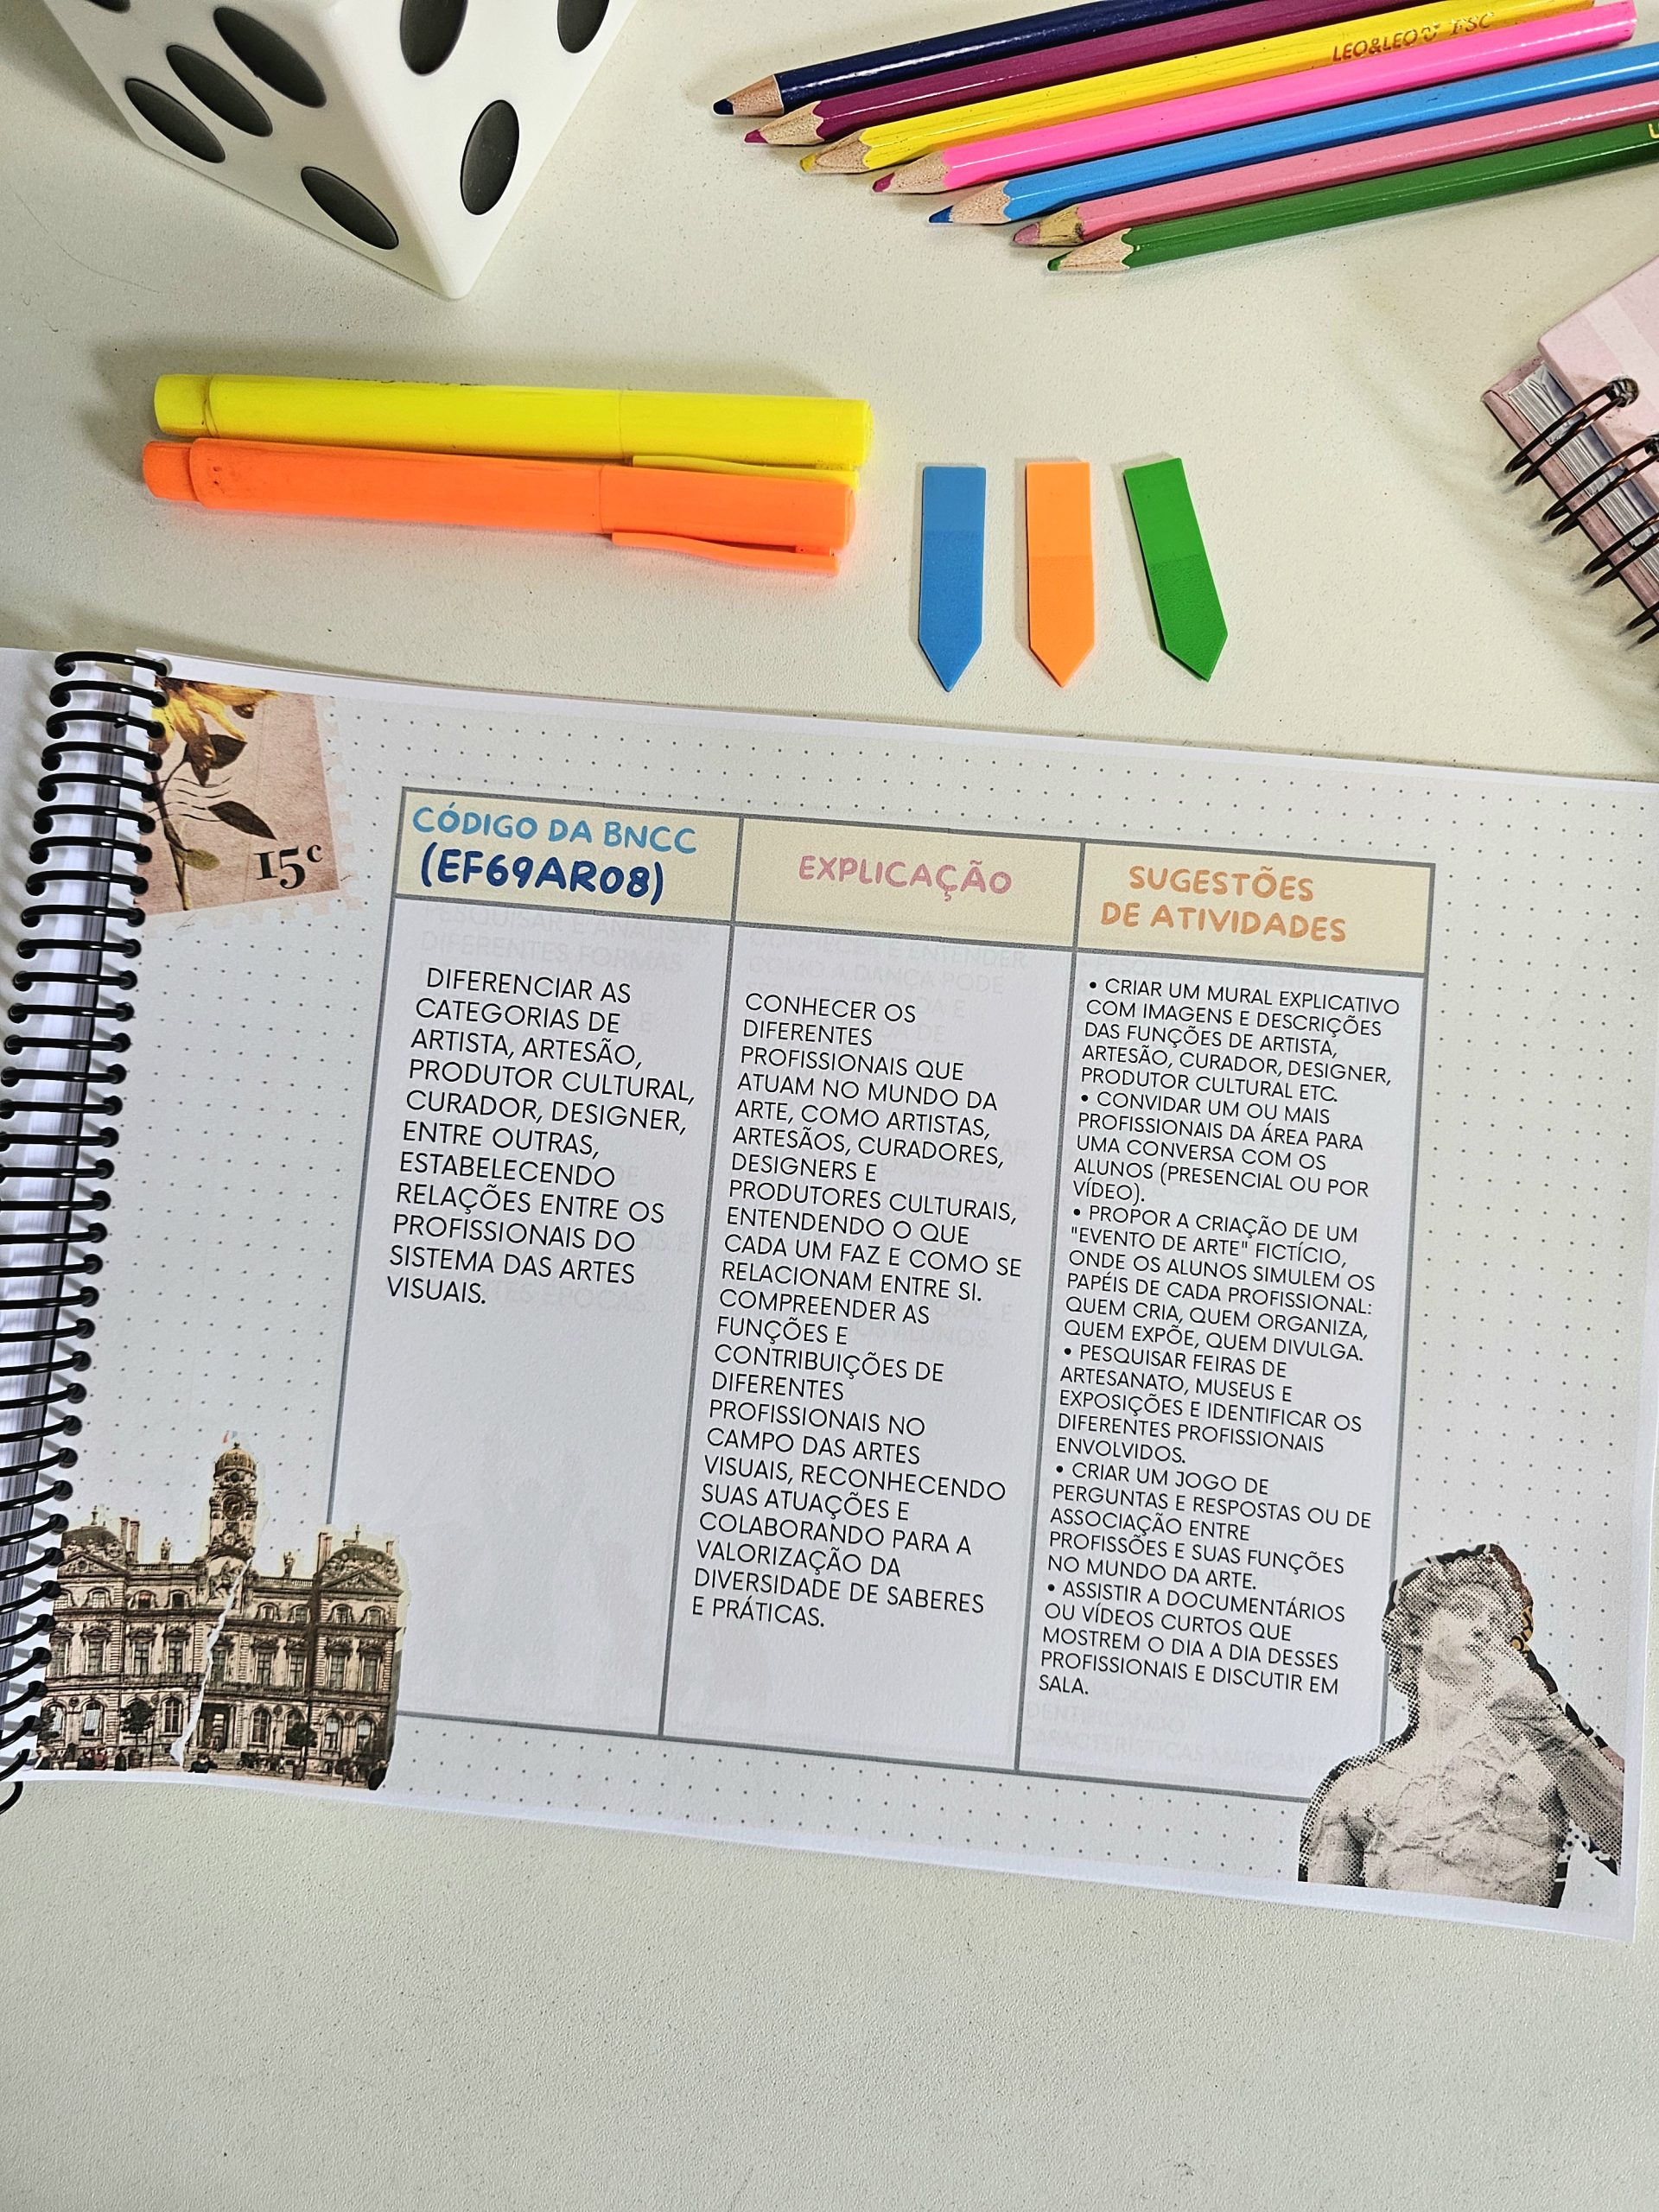 LEO&LEO FSC
15c
CÓDIGO DA BNCC
(EF69AR08)
DIFERENCIAR AS
CATEGORIAS DE
ARTISTA, ARTESÃO,
PRODUTOR CULTURAL,
CURADOR, DESIGNER,
ENTRE OUTRAS,
ESTABELECENDO
RELAÇÕES ENTRE OS
PROFISSIONAIS DO
SISTEMA DAS ARTES
VISUAIS.
EXPLICAÇÃO
CONHECER OS
DIFERENTES
PROFISSIONAIS QUE
ATUAM NO MUNDO DA
ARTE, COMO ARTISTAS,
ARTESÃOS, CURADORES,
DESIGNERS E
PRODUTORES CULTURAIS,
ENTENDENDO O QUE
CADA UM FAZ E COMO SE
RELACIONAM ENTRE SI.
COMPREENDER AS
FUNÇÕES E
CONTRIBUIÇÕES DE
DIFERENTES
PROFISSIONAIS NO
CAMPO DAS ARTES
VISUAIS, RECONHECENDO
SUAS ATUAÇÕES E
COLABORANDO PARA A
VALORIZAÇÃO DA
DIVERSIDADE DE SABERES
E PRÁTICAS.
SUGESTÕES
DE ATIVIDADES
• CRIAR UM MURAL EXPLICATIVO
COM IMAGENS E DESCRIÇÕES
DAS FUNÇÕES DE ARTISTA,
ARTESÃO, CURADOR, DESIGNER,
PRODUTOR CULTURAL ETC.
• CONVIDAR UM OU MAIS
PROFISSIONAIS DA ÁREA PARA
UMA CONVERSA COM OS
ALUNOS (PRESENCIAL OU POR
VÍDEO).
• PROPOR A CRIAÇÃO DE UM
"EVENTO DE ARTE" FICTÍCIO,
ONDE OS ALUNOS SIMULEM OS
PAPÉIS DE CADA PROFISSIONAL:
QUEM CRIA, QUEM ORGANIZA,
QUEM EXPÕE, QUEM DIVULGA.
• PESQUISAR FEIRAS DE
ARTESANATO, MUSEUS E
EXPOSIÇÕES E IDENTIFICAR OS
DIFERENTES PROFISSIONAIS
ENVOLVIDOS.
• CRIAR UM JOGO DE
PERGUNTAS E RESPOSTAS OU DE
ASSOCIAÇÃO ENTRE
PROFISSÕES E SUAS FUNÇÕES
NO MUNDO DA ARTE.
• ASSISTIR A DOCUMENTÁRIOS
OU VÍDEOS CURTOS QUE
MOSTREM O DIA A DIA DESSES
PROFISSIONAIS E DISCUTIR EM
SALA.